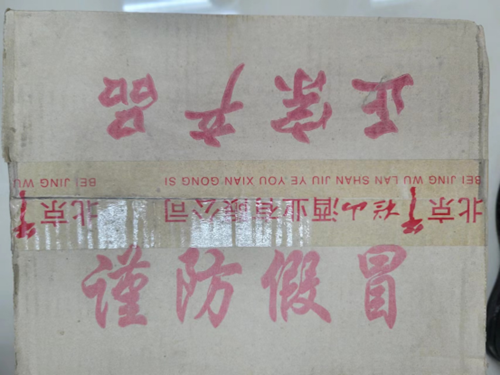 正宗产品
BEI JING WU LAN SHAN JIU YE YOU XIAN GONG SI BEI JING WU
北京 栏山酒业有限公司 北京
谨防假冒